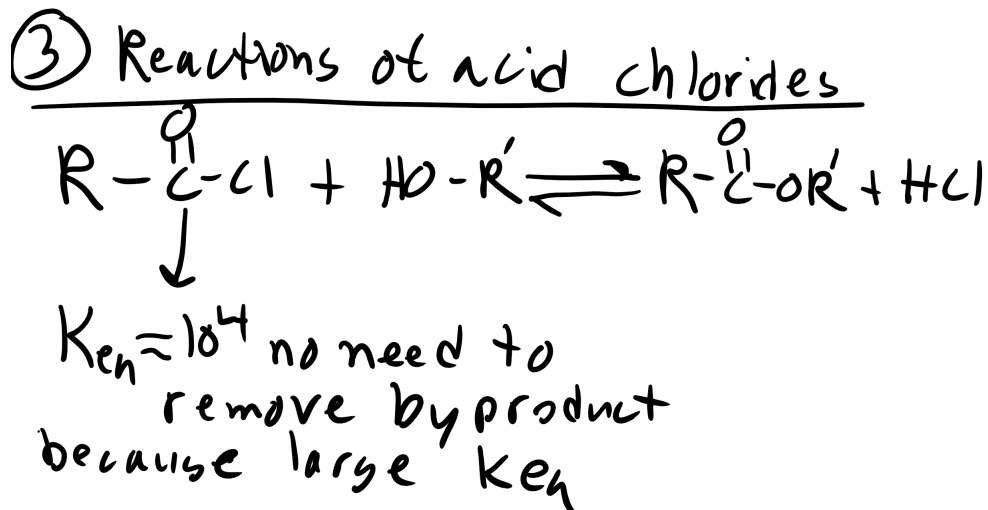 ③ Reactions of acid chlorides
O O
R-C-Cl + HO-R' ⇌ R-C-OR' + HCl
Keq ≈ 10⁴ no need to
remove byproduct
because large Keq